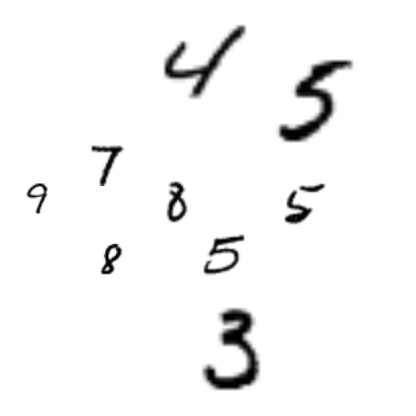 4
5
7
9 8 5
8 5
3